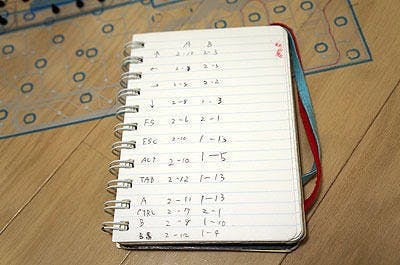 A B
↑ 2-11 2-3
← 2-8 2-3
→ 2-8 2-2
↓ 2-8 1-3
F5 2-6 2-1
ESC 2-10 1-13
ALT 2-10 1-5
TAB 2-12 1-13
A 2-11 1-13
CTRL 2-7 2-1
B 2-8 1-10
2-12 1-4